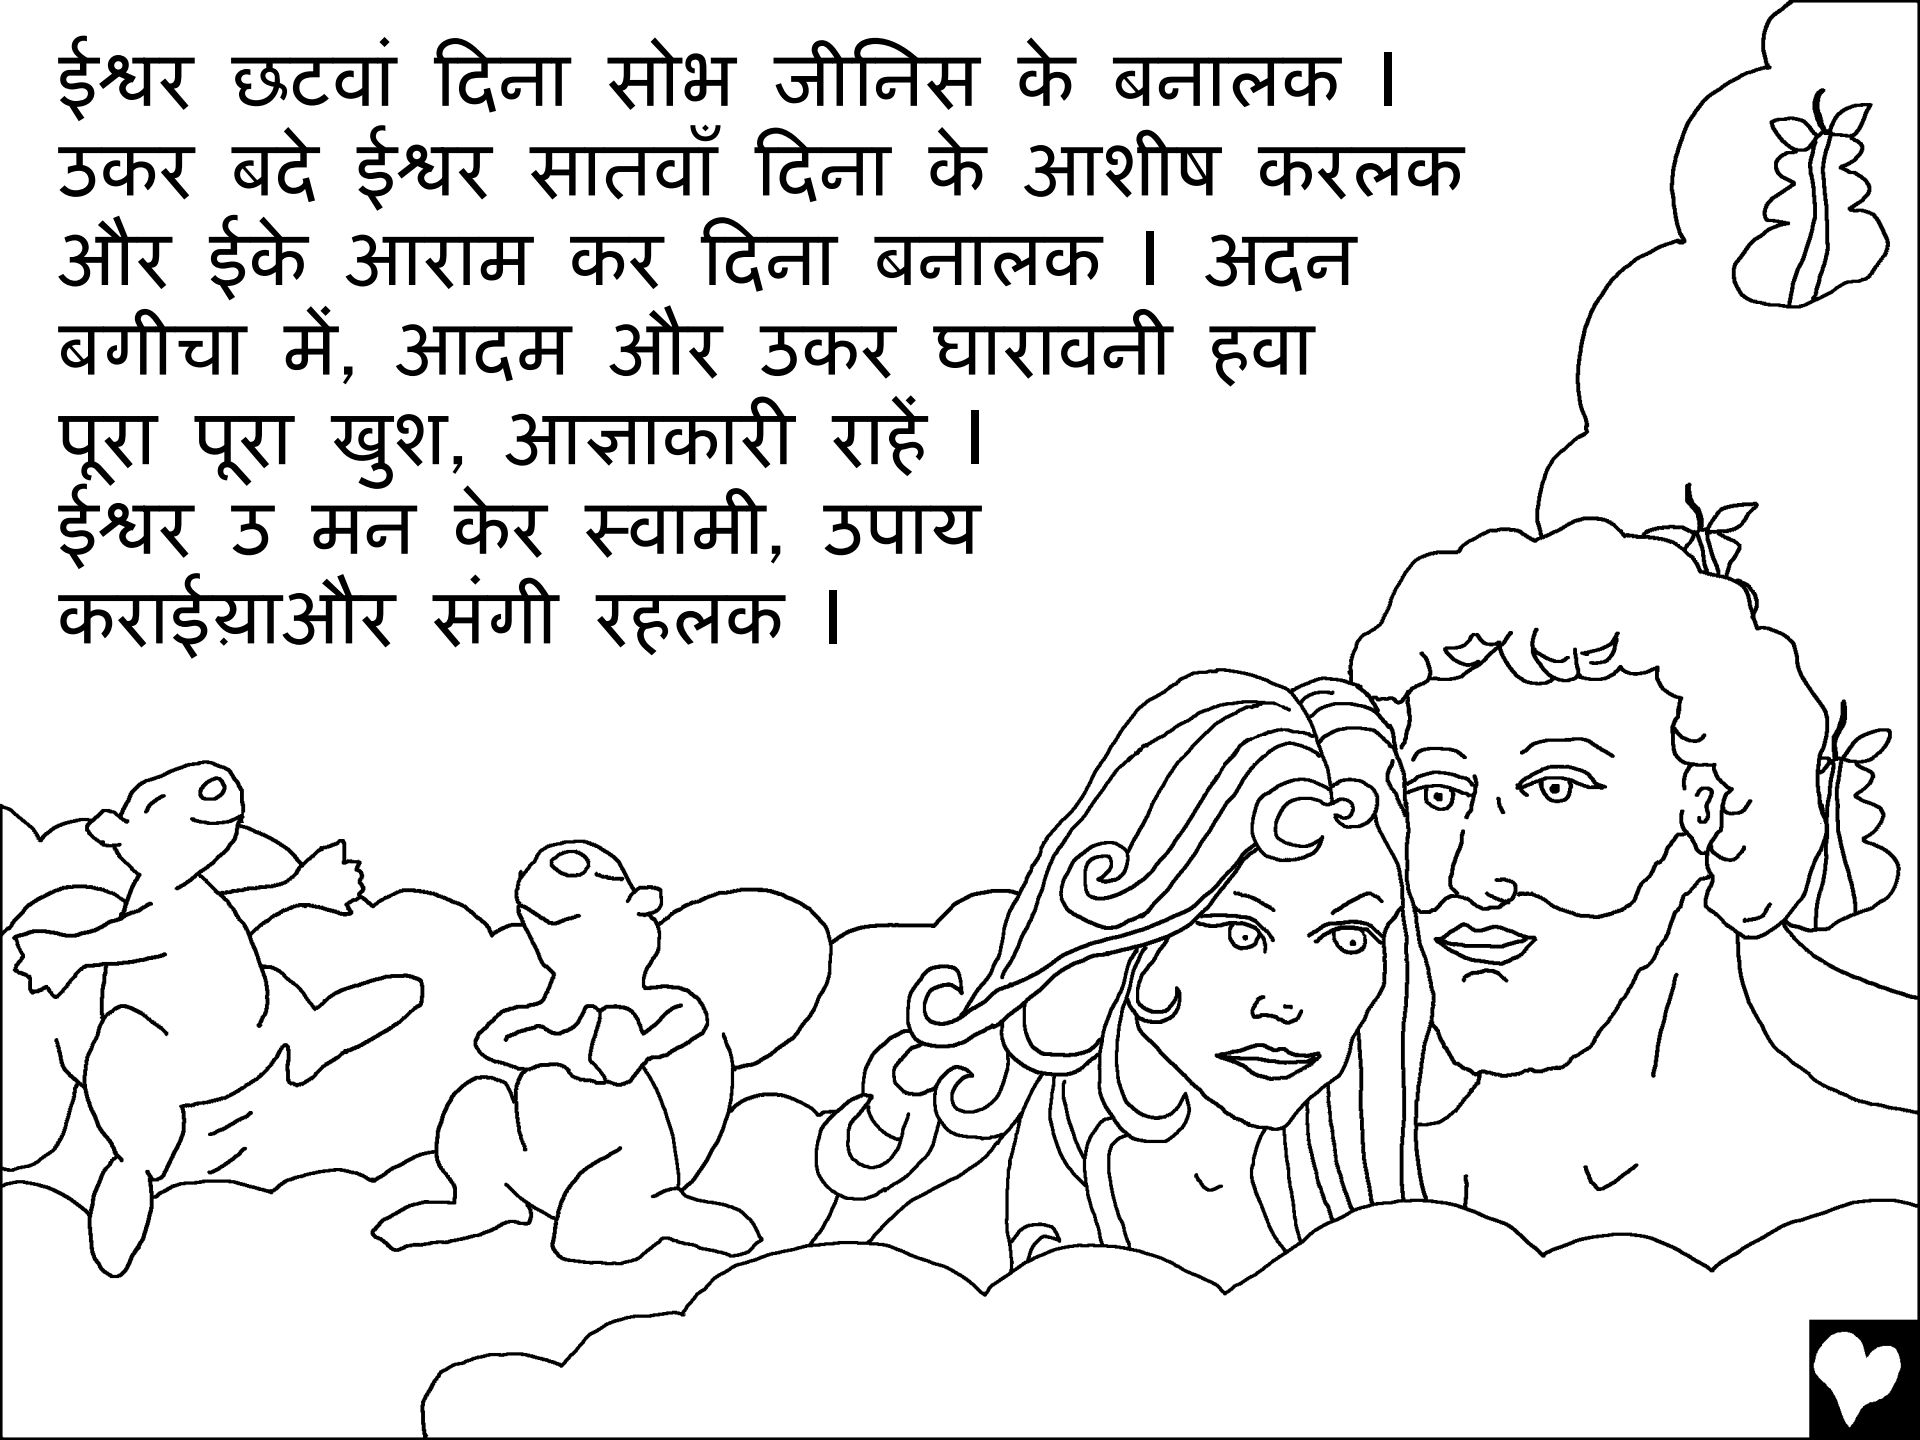 ईश्वर छटवां दिना सोभ जीनिस के बनालक ।
उकर बदे ईश्वर सातवाँ दिना के आशीष करलक
और ईके आराम कर दिना बनालक । अदन
बगीचा में, आदम और उकर घारावनी हवा
पूरा पूरा खुश, आज्ञाकारी राहें ।
ईश्वर उ मन केर स्वामी, उपाय
कराईय़ाऔर संगी रहलक ।